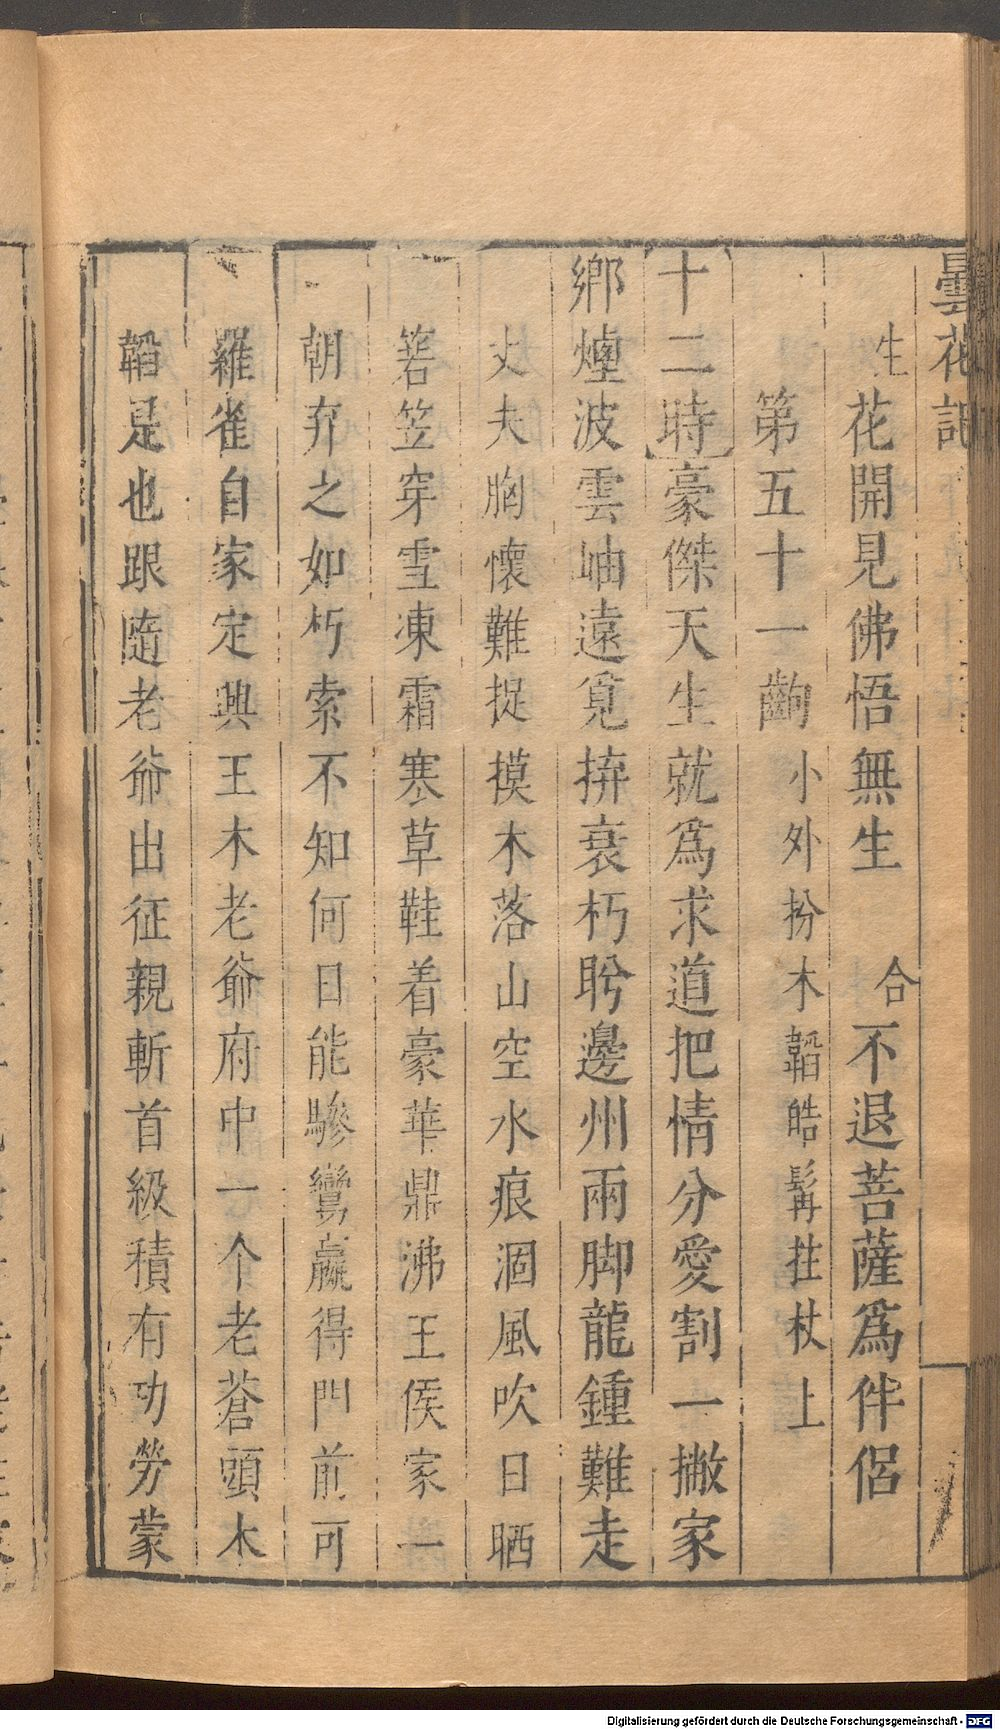 曇花記
生花開見佛悟無生　合不退菩薩爲伴侶
第五十一齣　小外扮木韜皓髯拄杖上
十二時豪傑天生就爲求道把情分愛割一撇家
鄉煙波雲岫遠覓拚衰朽盻邊州兩脚龍鍾難走
丈夫胸懷難捉摸木落山空水痕涸風吹日晒
箬笠穿雪凍霜寒草鞋着豪華鼎沸王侯家一
朝弃之如朽索不知何日能驂鸞羸得門前可
羅雀自家定興王木老爺府中一个老蒼頭木
韜是也跟隨老爺出征親斬首級積有功勞蒙
Digitalisierung gefördert durch die Deutsche Forschungsgemeinschaft - DFG